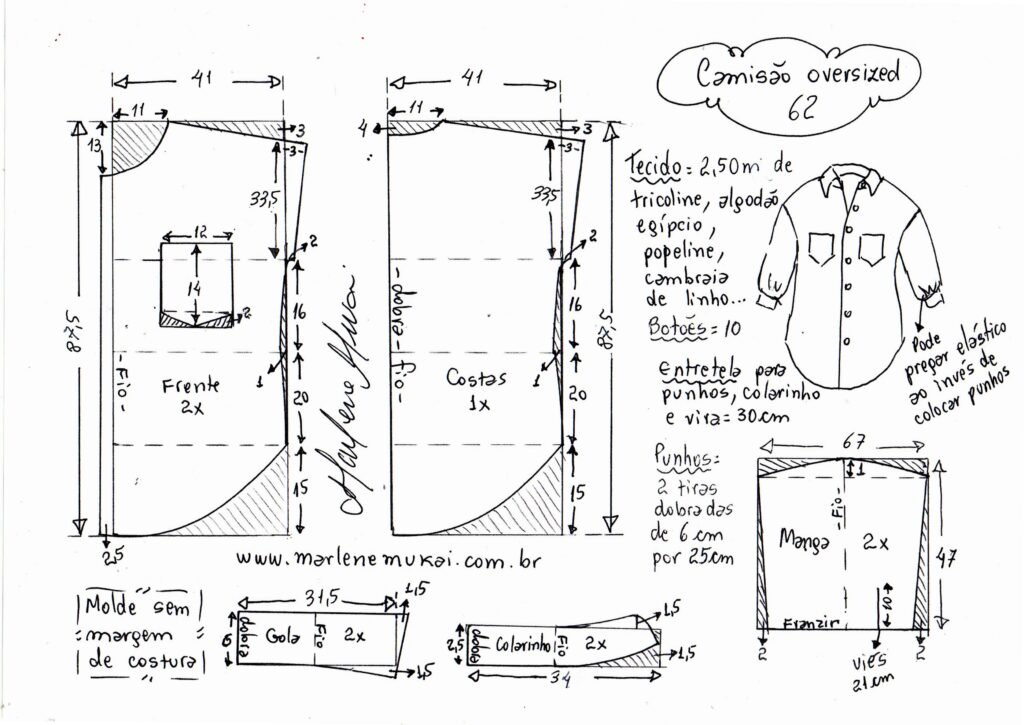 Camisão oversized
62
41
11
13
3
3
33,5
2
12
14
2
87,5
16
1
20
15
2,5
Fio
Frente
2x
Marlene Mukai
41
11
4
3
3
33,5
2
87,5
16
1
20
15
dobra - fio
Costas
1x
Tecido= 2,50m de
tricoline, algodão
egípcio,
popeline,
cambraia
de linho...
Botões= 10
Entretela para
punhos, colarinho
e vira= 30cm
Pode
pregar elástico
ao invés de
colocar punhos
Punhos=
2 tiras
dobradas
de 6cm
por 25cm
67
1
Fio
Manga 2x
47
10
Franzir
2
2
viés
21cm
www.marlenemukai.com.br
Molde sem
margem
de costura
31,5
1,5
6
dobra
Gola
Fio
2x
1,5
2,5
dobra
Colarinho
Fio
2x
1,5
1,5
34